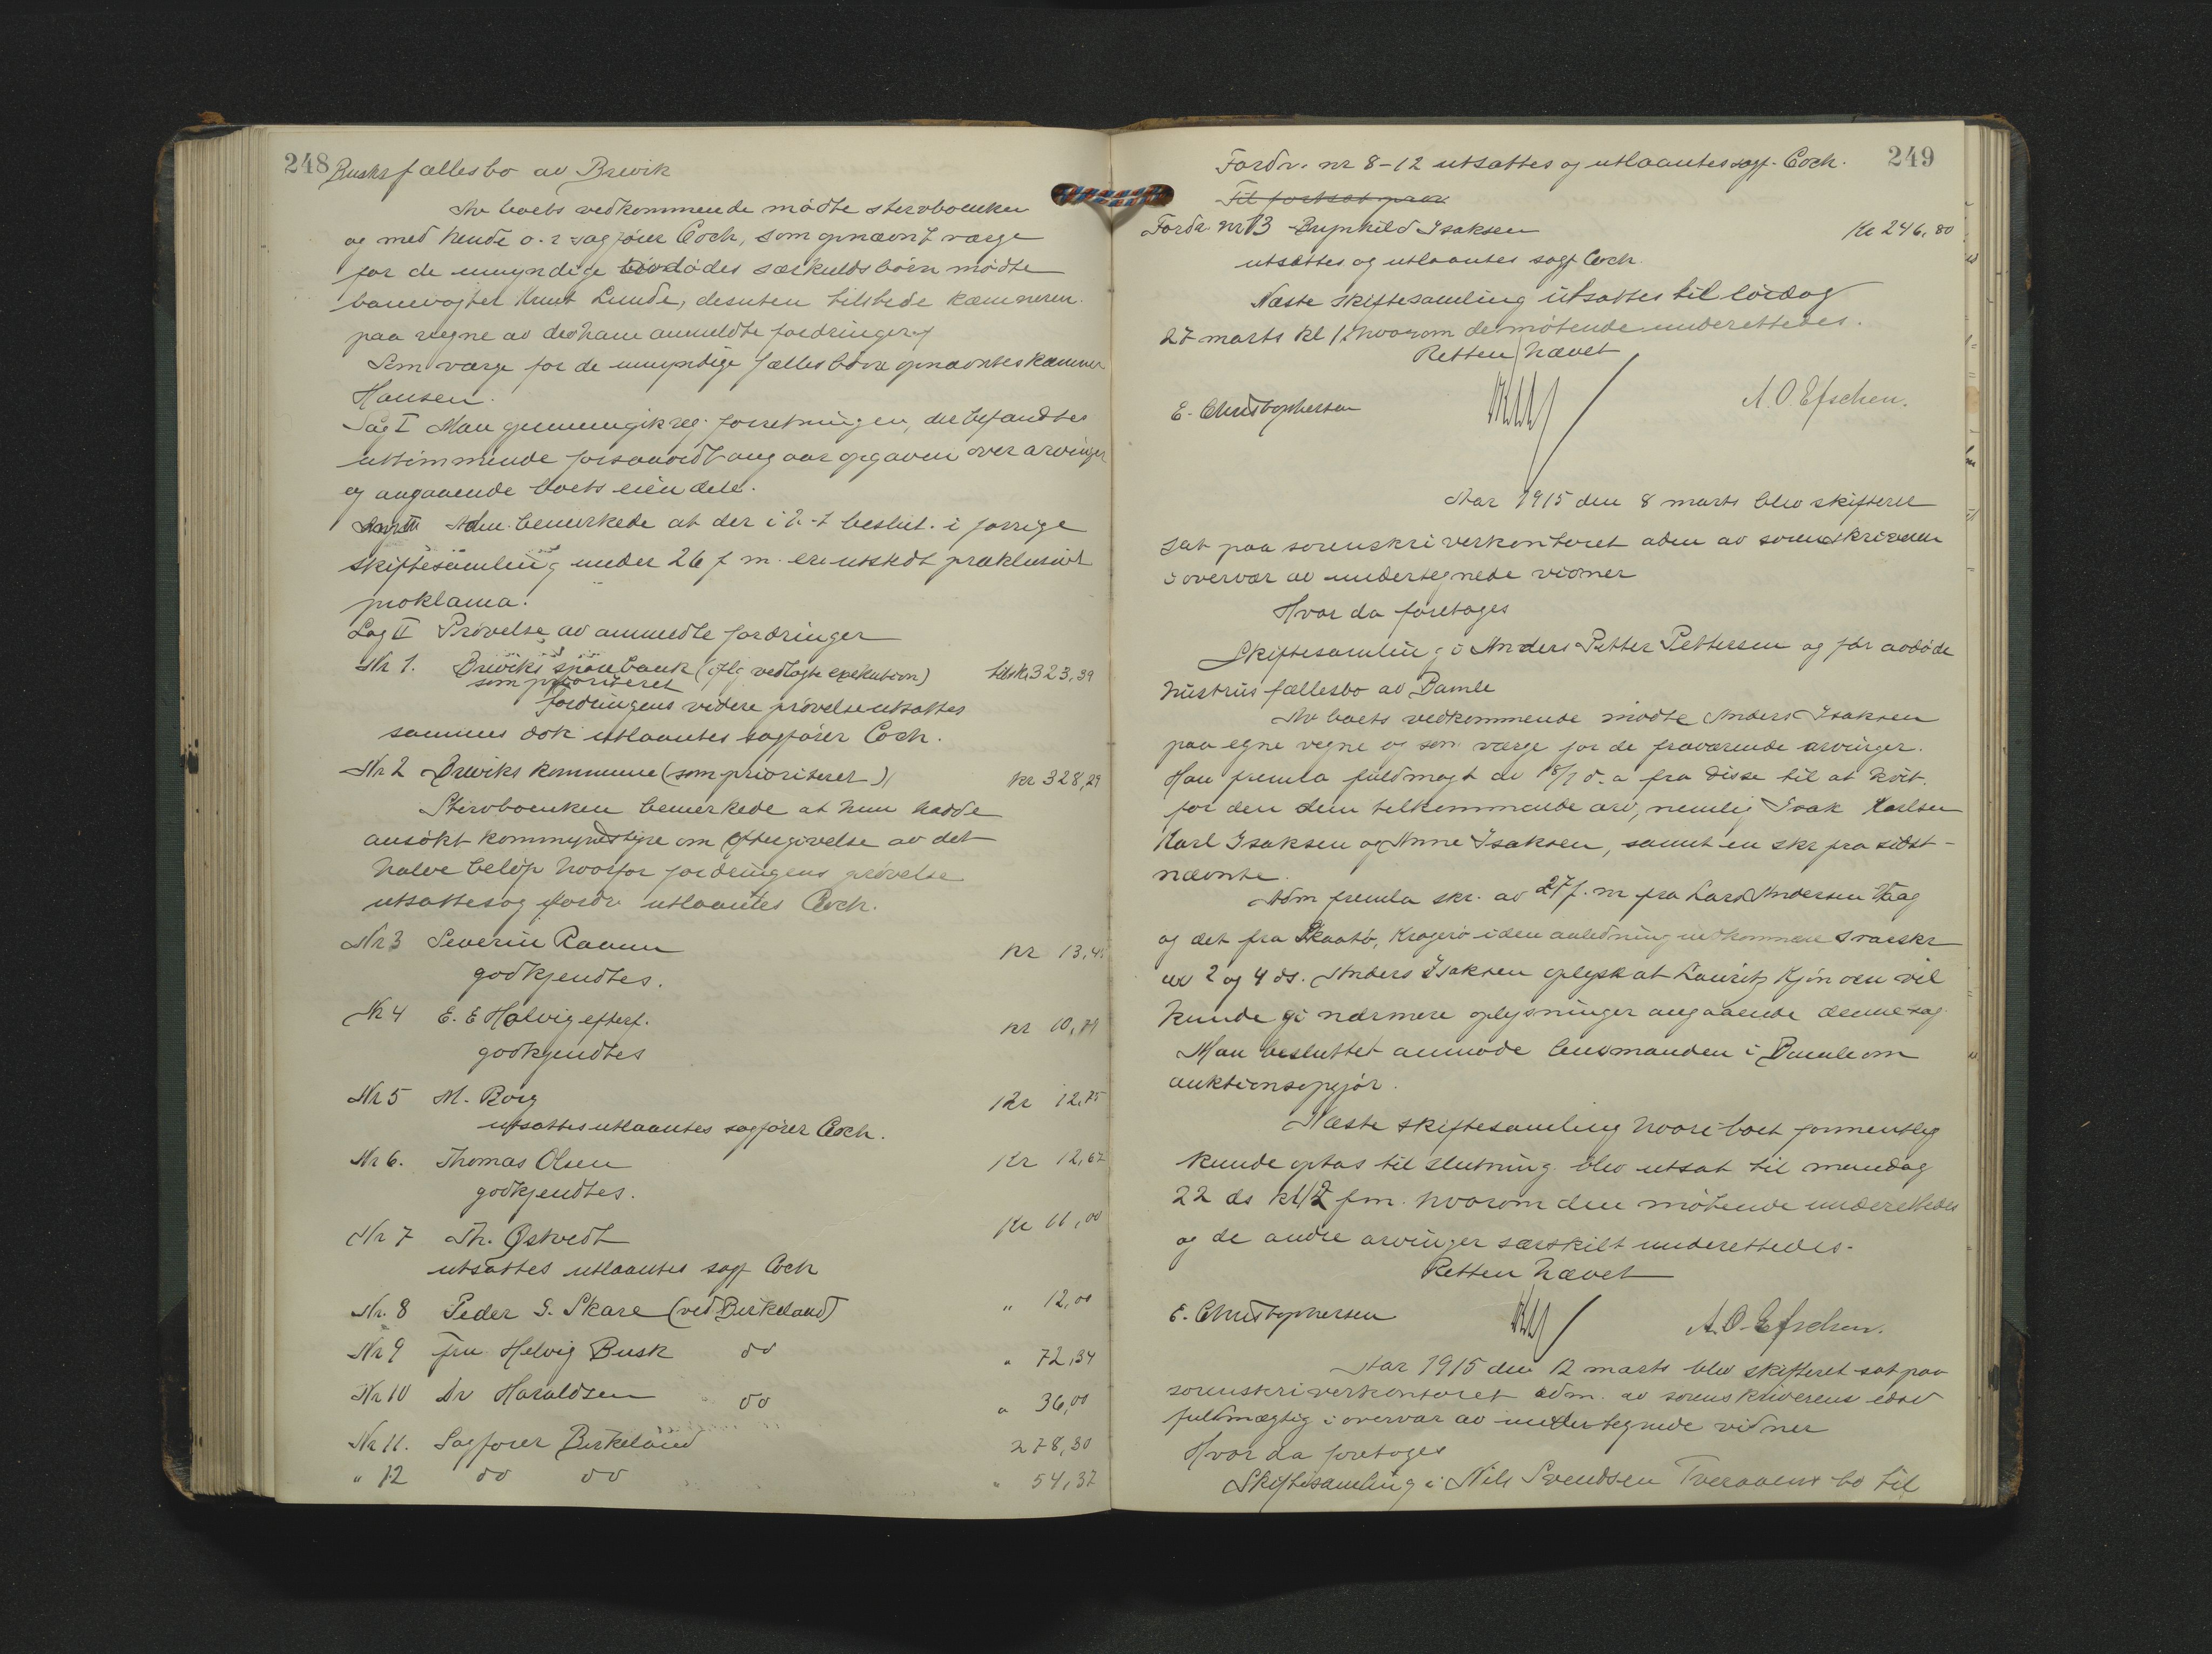 248 Busks fællesbo av Brevik
Av boets vedkommende mødte stervboenken
og med hende o.r sagfører Coch, som opnævnt værge
for de umyndige avdødes særkuldsbørn mødte
banevogter Knut Lunde, desuten tilstede kæmneren
paa vegne av de av ham anmeldte fordringer
Som værge for de umyndige fællesbørn opnævntes kæmner
Hansen.
Sag I Man gjennemgik reg. forretningen, der befandtes
utstemmende forsaavidt angaar opgaven over arvinger
og angaaende boets eiendele.
Sag III Adm. bemerkede at der i h.t beslut. i forrige
skiftesamling under 26 f m. er utstedt præklusivt
proklama.
Sag II Prøvelse av anmeldte fordringer
Nr 1. Breviks sparebank (iflg vedlagte exekution) kr 323,39
som prioriteret
fordringens videre prøvelse utsattes
sammes dok utlaantes sagfører Coch.
Nr 2 Breviks kommune (som prioriteret) kr 328,29
Stervboenken bemerkede at hun hadde
ansøkt kommunestyre om eftergivelse av det
halve beløp hvorfor fordringens prøvelse
utsattes og fordr. utlaantes Coch.
Nr 3 Severin Raum kr 13,45
godkjendtes.
Nr 4 E. E Halvig efterf. kr 10,79
godkjendtes
Nr 5 M. Borg Kr 12,75
utsattes utlaantes sagfører Coch.
Nr 6. Thomas Olsen Kr 12,67
godkjendtes.
Nr 7 Th. Østvedt Kr 11,00
utsattes utlaantes sagf Coch
Nr. 8 Peder G. Skare (ved Birkeland) " 12,00
Nr 9 fru Helvig Busk do " 72,34
Nr 10 Dr Haraldsen do " 36,00
Nr 11. Sagfører Birkeland 278,30
" 12 do do " 54,37
Fordr. nr 8-12 utsattes og utlaantes sagf. Coch. 249
Til fortsat prøv
Fordr. nr 13 Brynhild Isaksen Kr 246,80
utsattes og utlaantes sagf Coch.
Næste skiftesamling utsattes til lørdag
27 marts kl 12 hvorom de møtende underettedes.
Retten hævet
E. Christophersen A. O. Efschen.
Aar 1915 den 8 marts blev skifteret
sat paa sorenskriverkontoret adm av sorenskriveren
i overvær av undertegnede vidner
Hvor da foretoges
Skiftesamling i Anders Petter Pettersen og før avdøde
hustrus fællesbo av Bamle
Av boets vedkommende mødte Anders Isaksen
paa egne vegne og som værge for de fraværende arvinger.
Han fremla fuldmagt av 18/1 d. a fra disse til at kvit.
for den dem tilkommende arv, nemlig Isak Karlsen
Karl Isaksen og Anne Isaksen, samt en skr fra sidst-
nævnte.
Adm fremla skr. av 27 f. m fra Lars Andersen Vaag
og det fra Skaatø, Kragerø i den anledning indkomne svarskr
av 2 og 4 ds. Anders Isaksen oplyste at Lauritz Kjønøen vil
kunde gi nærmere oplysninger angaaende denne sag.
Man besluttet anmode lensmanden i Bamle om
auktionsopgjør.
Næste skiftesamling hvori boet formentlig
kunde optas til slutning blev utsat til mandag
22 ds kl 12 fm. hvorom den møtende underettedes
og de andre arvinger særskilt underettedes.
Retten hævet
E. Christophersen A. O. Efschen.
Aar 1915 den 12 marts blev skifteret sat paa
sorenskriverkontoret adm. av sorenskriverens edsv
fuldmægtig i overvær av undertegnede vidner
Hvor da foretoges
Skiftesamling i Nils Svendsen Tveraaens bo til